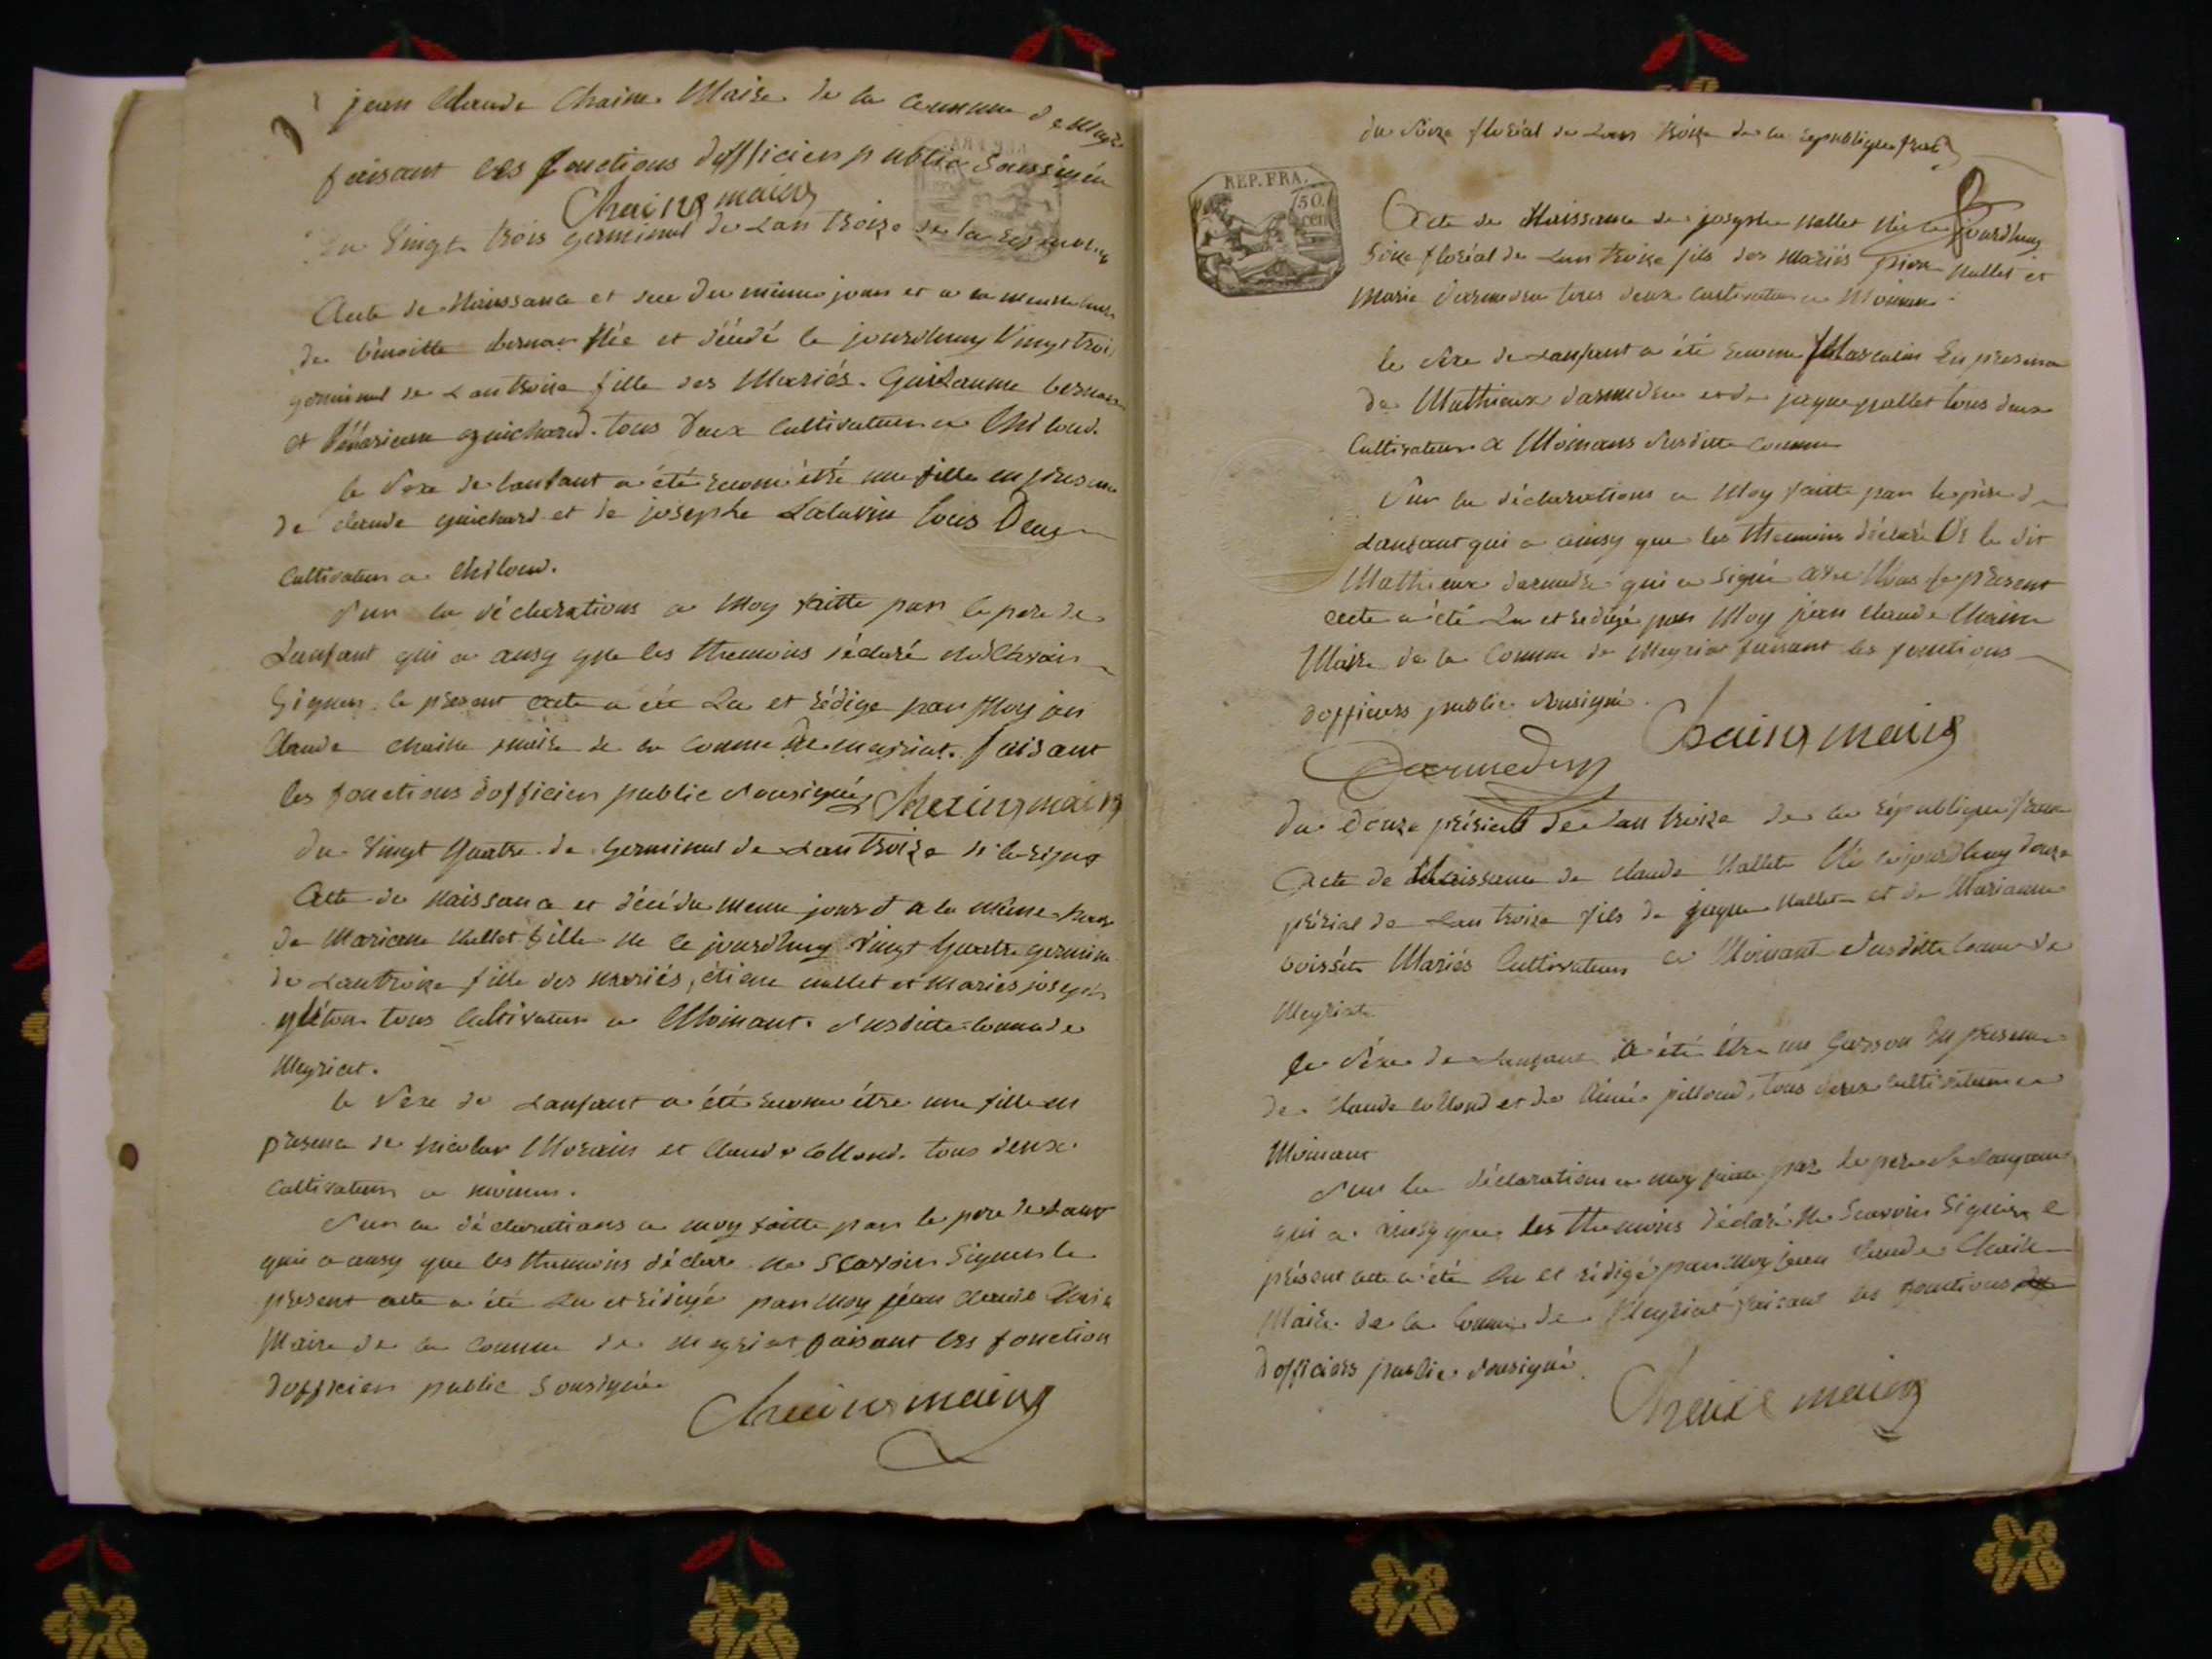 jean Claude Chaine Maire de la commune de
faisant les fonctions dofficier public Soussigné
Chaine maire
Du Vingt trois germinal de Lan troize de la
Acte de Naissance et du même jour et a la même
de bénoitte Née et décédé le jourdhuy Vingt trois
germinal de Lan troize fille des Mariés Guillaume
et guichard tous deux Cultivateur a Chiloud
le Sexe de lanfant a été reconu être une fille en presence
de claude guichard et de josephe tous Deux
Cultivateur a Chiloud.
Sur la déclarations a Moy faitte par le pere de
Lanfant qui a ausy que les themoins déclaré ne Scavoir
Signer le present acte a été Lu et rédige par Moy jan
Claude chaine maire de la comune de mayriat faisant
les fonctions dofficier public Sousigné Chaine maire
du Vingt quatre de Germinal de Lan troize de la
Acte de Naissance et décé du meme jour et a la même
de Mariane Nallet fille Ne le jourdhuy Vingt quatre germinal
de Lan troize fille des mariés étiene nallet et Maries joseph
tous Cultivateur a Moinant Susditte Comune de
Meyriat.
le Sexe de Lanfant a été reconu être une fille en
presence de nicolas Morain et Claude Collond tous deux
Cultivateurs a
Sur la déclarations a moy faitte par le pere de Lanf
qui a ausy que les themoins déclare ne Scavoir Signer le
present acte a été Lu et rédigé par Moy jean claude Chaine
Maire de la Comune de meyriat faisant les fonction
dofficier public Sousigné
Chaine maire
du Sixe floréal de Lan troize de la republique
REP. FRA.
50
cen
Acte de Naissance de josephe nallet Née le jourdhuy
Sixe floréal de Lan troize fils des Mariés nallet et
Marie tous deux Cultivateur a
le Sexe de Lanfant a été reconu Masculin En presence
de Mathieux et de jaque nallet tous deux
Cultivateur a Moinans Susditte Comune
Sur la déclarations a Moy faitte par le père de
Lanfant qui a ainsy que les themoins déclaré le dit
Mathieux qui a Signé avec Nous le present
acte a été Lu et rédigé par Moy jean claude Chaine
Maire de la Comune de Meyriat faisant les fonctions
dofficiers public Sousigné
Chaine maire
du Douze prérial de Lan troize de la République
Acte de Naissance de claude Nallet Né le jourdhuy douze
prérial de Lan troize fils de jaque Nallet et de Marianne
Mariés Cultivateurs a Moinant Susditte Comune de
Meyriat
le Séxe de Lanfant a été être un Garson En presence
de Claude Collond et de Aimé pilloud, tous deux Cultivateur a
Moinant
Sur la déclarations a moy faitte par le pere de Lanfant
qui a ainsy que les themoins déclaré Ne Scavoir Signer le
présent acte a été Lu et rédigé par Moy jean Claude Chaine
Maire de la Comune de Meyriat faisant les fonctions
dofficiers public Sousigné
Chaine maire